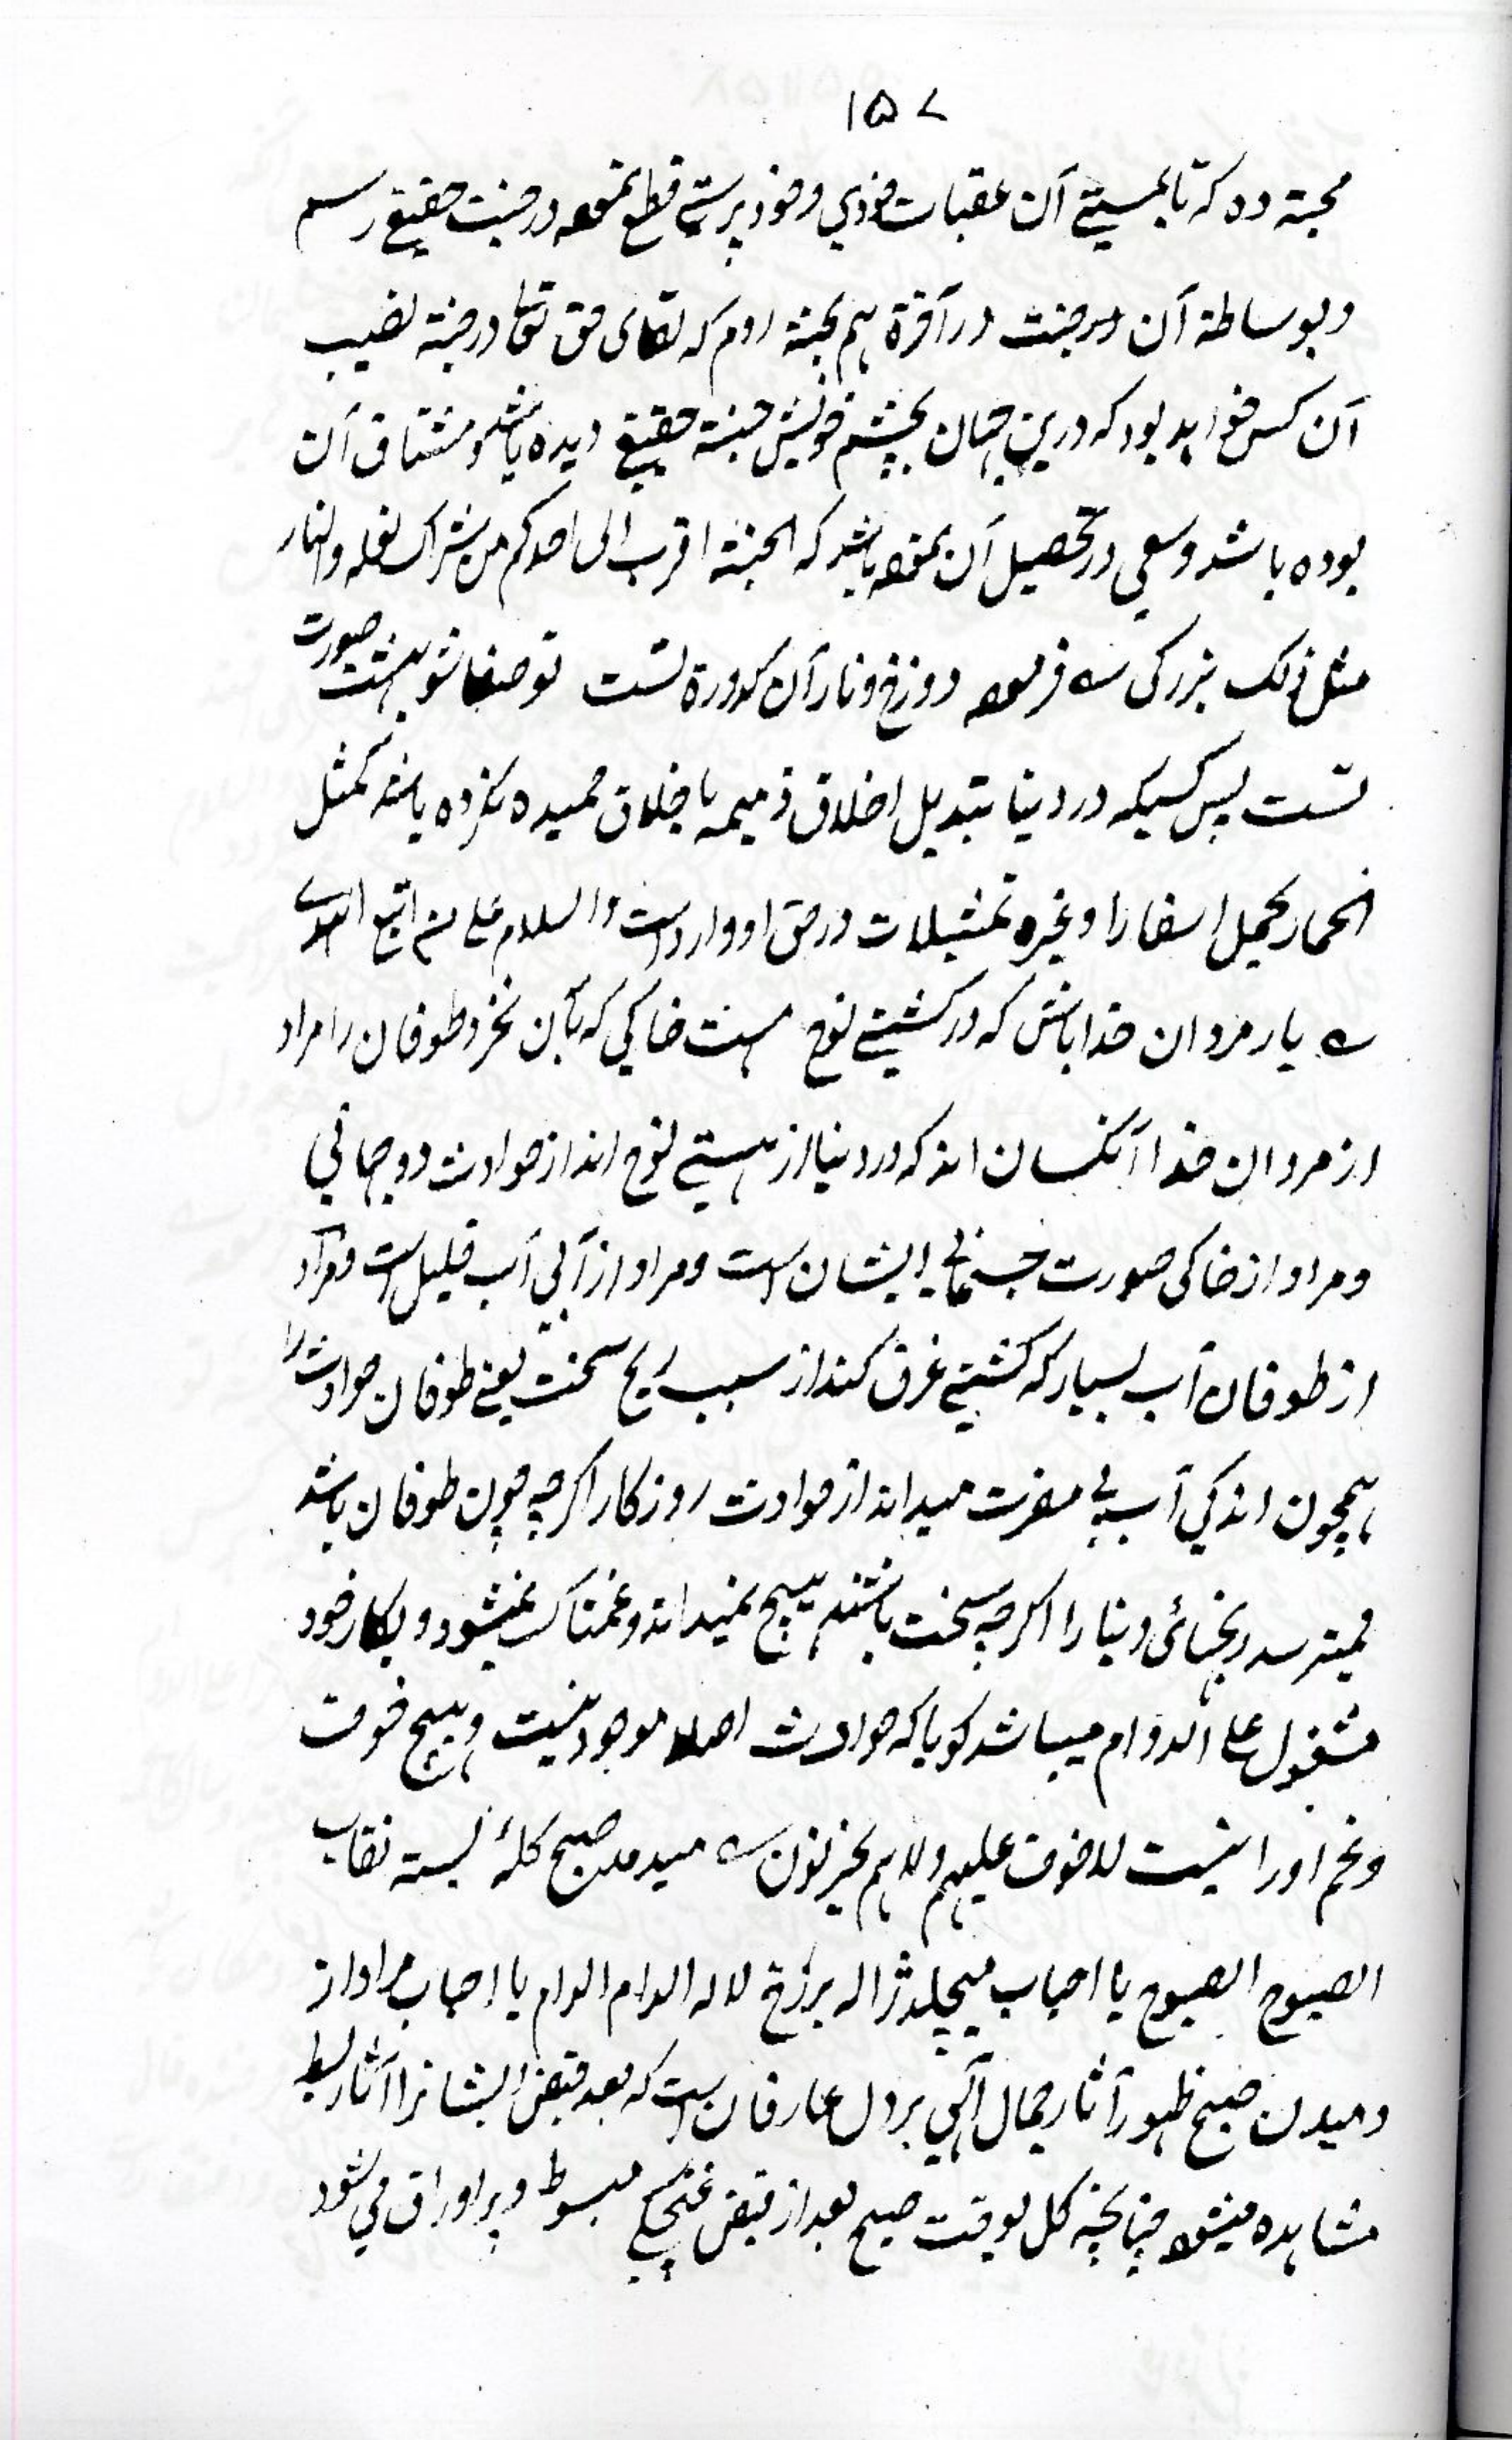 ۱۵۷
محبة ده که تا بمستی آن عقبات خودی و خود پرستی قطع نموده در جنت حقیقی رسم
و بوساطة آن در جنت در آخرة هم بجنة روم که لقای حق تعالی در جنة نصیب
آن کس خواهد بود که درین جهان بچشم خویش جنة حقیقی دیده باشد و مشتاق آن
بوده باشد و سعی در تحصیل آن نموده باشد که الجنة اقرب الی احدکم من شراک نعله والنار
مثل ذلک بزرگی ؎ فرموده دوزخ و نار آن کدورة تست تو صفا شو بهشت صورت
تست پس کسیکه در دنیا تبدیل اخلاق ذمیمه باخلاق حمیده نکرده باشد کمثل
الحمار یحمل اسفارا وغیره تمثیلات در حق او وارد است والسلام علی من اتبع الهدی
؎ یار مردان خدا باش که در کشتی نوح هست خاکی که بآبی نخرد طوفان را مراد
از مردان خدا آنکسان اند که در دنیا از هستی نوح اند از حوادث دو جهانی
و مراد از خاکی صورت جسمانی ایشان است و مراد از آبی آب قلیل است و مراد
از طوفان آب بسیار که کشتی غرق کند از سبب ریح سخت یعنی طوفان حوادث را
همچون اندکی آب بی مضرت میداند از حوادث روزکار اکرچه چون طوفان باشد
نمیترسد رنجهائی دنیا را اکرچه سخت باشند هیچ نمیداند و غمناک نمیشود و بکار خود
مشغول علی الدوام میباشد کویا که حوادث اصلا موجود نیست و هیچ خوف
و غم او را نیست لا خوف علیهم ولا هم یحزنون ؎ میدمد صبح کلۀ بسته نقاب
الصبوح الصبوح یا احباب میچکد ژاله بر رخ لاله المدام المدام یا احباب مراد از
دمیدن صبح ظهور آثار جمال الهی بر دل عارفان است که بعد قبض ایشانرا آثار بسط
مشاهده میشود چنانچه کل بوقت صبح بعد از قبض غنچکی مبسوط و پر اوراق می شود